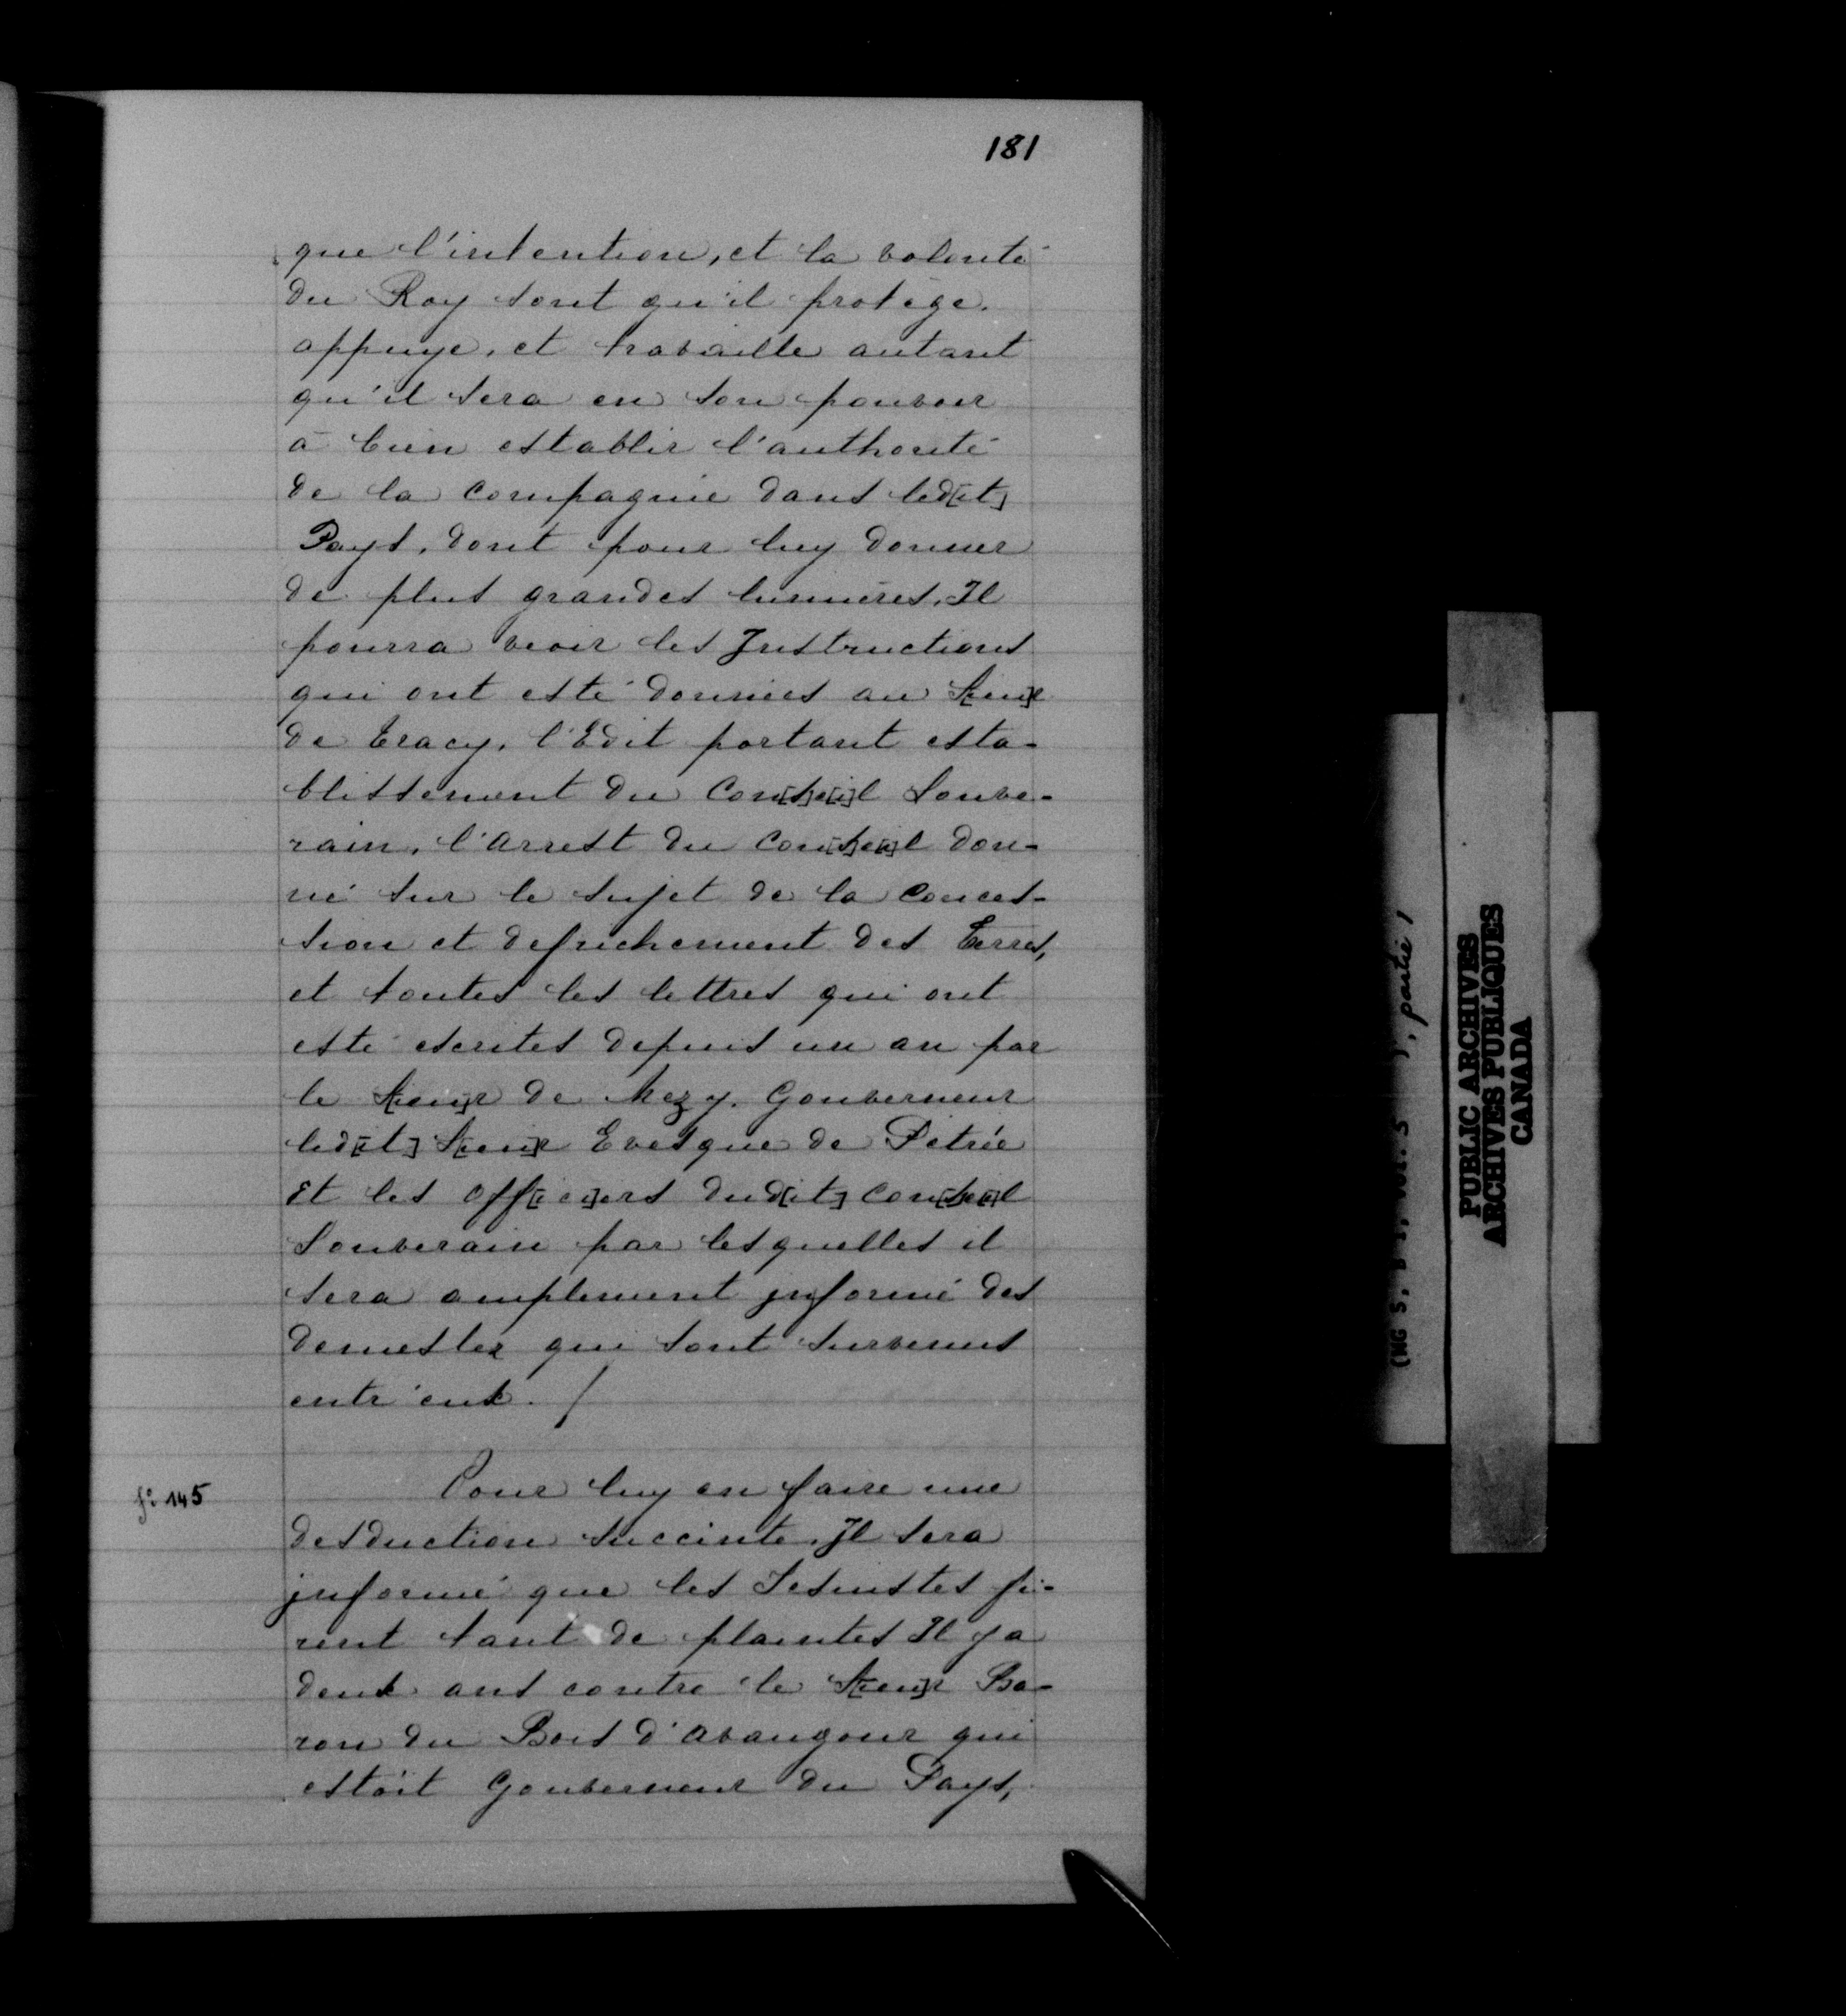 181
que l'intention, et la volonté
du Roy sont qu'il protège.
appuye, et travaille autant
qu'il sera en son pouvoir
à bien establir l'authorité
de la compagnie dans led[it]
Pays, dont pour luy donner
de plus grandes lumières, Il
pourra veoir les Instructions
qui ont esté données au S[ieu]r
de Tracy, l'Edit portant esta-
blissement du Con[s]e[i]l Souve-
rain, l'arrest du con[s]e[i]l don-
né sur le sujet de la conces-
sion et defrichement des Terres,
et toutes les lettres qui ont
esté escrites depuis un an par
le S[ieu]r de Mezy, Gouverneur
led[it] S[ieu]r Evesque de Petrée
Et les off[ici]ers dud[it] con[se]i[l]
Souverain par lesquelles il
sera amplement jnformé des
demeslez qui sont survenus
entr'eux. /
f° 145
Pour luy en faire une
desduction succinte, Jl sera
jnformé que les Jesuistes fi-
rent tant de plaintes Il y a
deux ans contre le S[ieu]r Ba-
ron du Bois d'avangour qui
estoit Gouverneur du Pays,
(MG 5, B 1, vol. 5, partie 1
PUBLIC ARCHIVES
ARCHIVES PUBLIQUES
CANADA